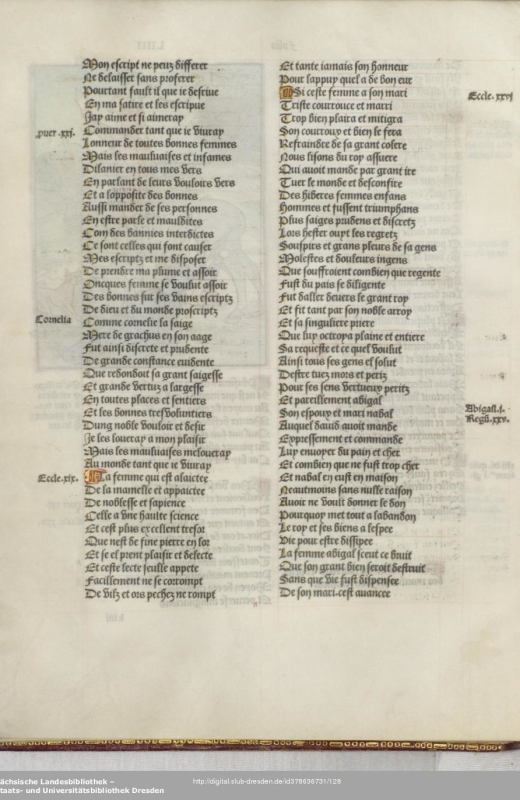 Mon escript ne peuz differer
Ne delaisser sans proferer
Pourtant fault il que ie descriue
En ma satire et les escripue
Jay aime et si aimeray
puer. xxj.
Commander tant que ie viuray
Lonneur de toutes bonnes femmes
Mais les mauluaises et infames
Dilanier en tous mes vers
En parlant de leurs vouloirs vers
Et a lopposite des bonnes
Aussi mander de ses personnes
En estre parle et mauldites
Com des bannies interdictes
Ce sont celles qui font causer
Mes escriptz et me disposer
De prendre ma plume et assoir
Oncques femme se voulut assoir
Des bonnes sur ses vains escriptz
De dieu et du monde proscriptz
Cornelia
Comme cornelie la saige
Mere de gracchus en son aage
Fut ainsi discrete et prudente
De grande constance euidente
Que redondoit sa grant saigesse
Et grande vertuz a largesse
En toutes places et sentiers
Et les bonnes tresvoluntiers
Dung noble vouloir et desir
Je les loueray a mon plaisir
Mais les mauluaises meloueray
Au monde tant que ie viuray
Eccle. xix.
La femme qui est afaictee
De la mamelle et appaictee
De noblesse et sapience
Celle a vne haulte science
Et cest plus excellent tresor
Que nest de fine pierre en lor
Et se el prent plaisir et delecte
Et ceste lecte seulle appete
Facillement ne se corrompt
De vilz et ors pechez ne rompt
Et tante iamais son honneur
Pour lappuy quel a de bon eur
Eccle. xxvj
Si ceste femme a son mari
Triste courrouce et marri
Trop bien plaira et mitigra
Son courroux et bien le fera
Refraindre de sa grant colere
Nous lisons du roy assuere
Qui auoit mande par grant ire
Tuer le monde et desconfire
Des hibéres femmes enfans
Hommes et fussent triumphans
Plus saiges prudens et discretz
Lors hester ouyt les regretz
Souspirs et grans pleurs de sa gens
Molestes et douleurs ingens
Que souffroient combien que regente
Fust du pais se diligente
Fut daller deuers le grant roy
Et fit tant par son noble arroy
Et sa singuliere priere
Que luy octroya plaine et entiere
Sa requeste et ce quel voulut
Ainsi tous ses gens el solut
Destre tuez mors et periz
Pour ses sens vertueux periz
Et pareillement abigal
Abigail. j.
Son espoux et mari nabal
Regū. xxv.
Auquel dauid auoit mande
Expressement et commande
Luy enuoyer du pain et cher
Et combien que ne fust trop cher
Et nabal en eust en maison
Neautmoins sans nulle raison
Auoir ne voult donner le don
Pourquoy met tout a labandon
Le roy et ses biens a lespee
Vie pour estre dissipee
La femme abigal sceut ce bruit
Que son grant bien seroit destruit
Sans que vie fust dispensee
De son mari. cest auancee
ächsische Landesbibliothek –
taats- und Universitätsbibliothek Dresden
http://digital.slub-dresden.de/id378636731/128